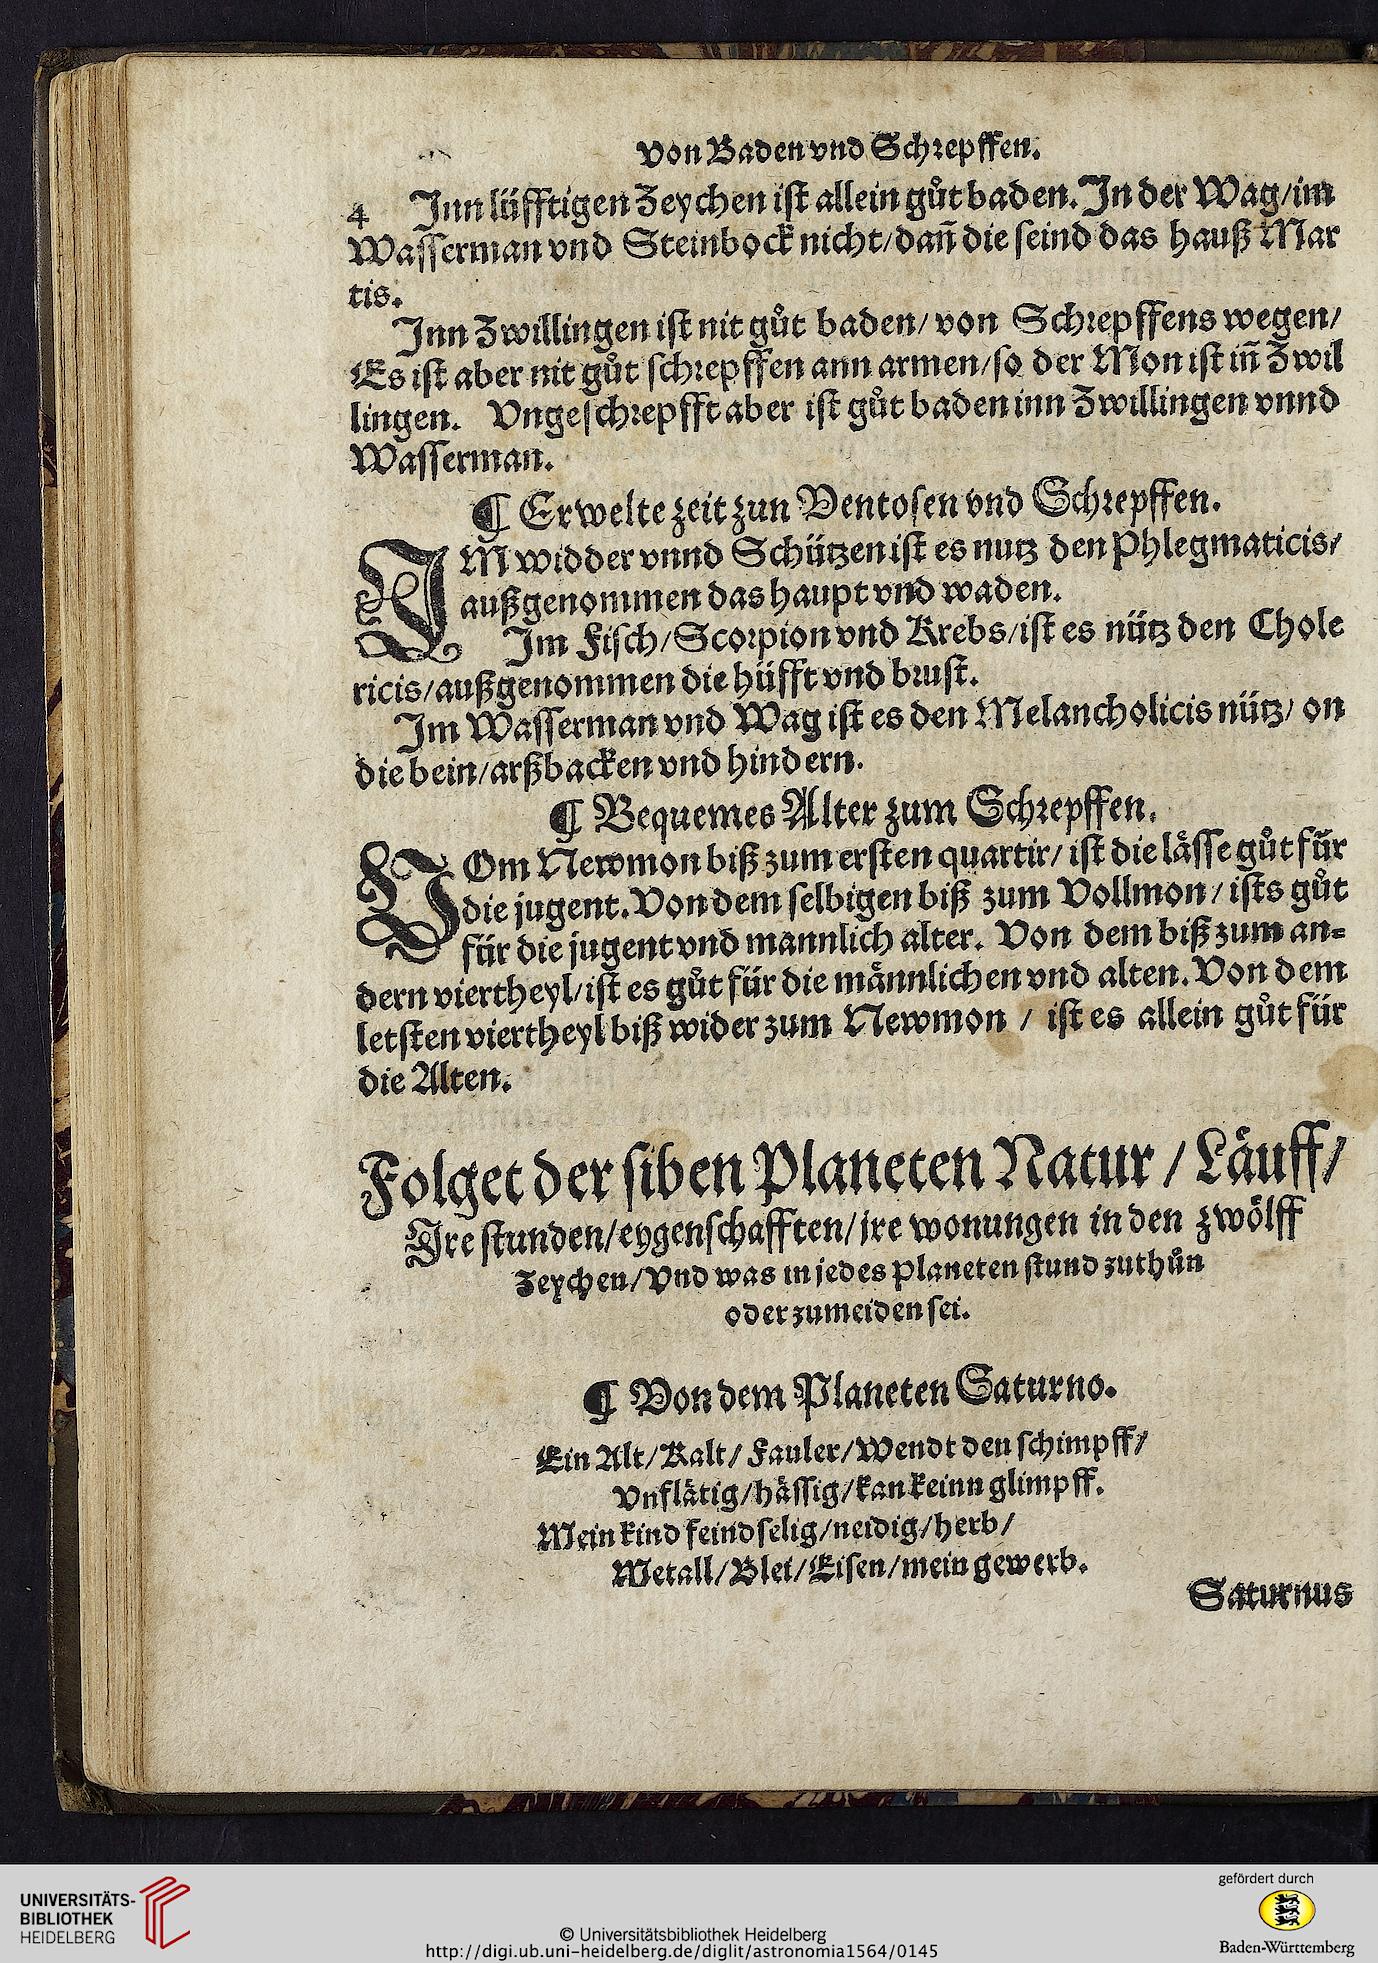 von Baden vnd Schrepffen.
4 Inn lüfftigen Zeychen ist allein gůt baden. In der Wag/im
Wasserman vnd Steinbock nicht/dañ die seind das hauß Mar
tis.
Inn Zwillingen ist nit gůt baden/ von Schrepffens wegen/
Es ist aber nit gůt schrepffen ann armen/so der Mon ist iñ Zwil
lingen. Vngeschrepfft aber ist gůt baden inn Zwillingen vnnd
Wasserman.
¶ Erwelte zeit zun Ventosen vnd Schrepffen.
IM widder vnnd Schützen ist es nutz den Phlegmaticis/
außgenommen das haupt vnd waden.
Im Fisch/Scorpion vnd Krebs/ist es nütz den Chole
ricis/außgenommen die hüfft vnd brust.
Im Wasserman vnd Wag ist es den Melancholicis nütz/ on
die bein/arßbacken vnd hindern.
¶ Bequemes Alter zum Schrepffen.
VOm Newmon biß zum ersten quartir/ ist die lässe gůt für
die jugent. Von dem selbigen biß zum Vollmon/ ists gůt
für die jugent vnd mannlich alter. Von dem biß zum an=
dern viertheyl/ist es gůt für die männlichen vnd alten. Von dem
letsten viertheyl biß wider zum Newmon / ist es allein gůt für
die Alten.
Folget der siben Planeten Natur / Läuff/
Ire stunden/eygenschafften/jre wonungen in den zwölff
Zeychen/Vnd was in jedes Planeten stund zuthůn
oder zumeiden sei.
¶ Von dem Planeten Saturno.
Ein Alt/Kalt/ Fauler/Wendt den schimpff/
Vnflätig/hässig/kan keinn glimpff.
Mein kind feindselig/neidig/herb/
Metall/Blei/Eisen/mein gewerb.
Saturnus
UNIVERSITÄTS-
BIBLIOTHEK
HEIDELBERG
© Universitätsbibliothek Heidelberg
http://digi.ub.uni-heidelberg.de/diglit/astronomia1564/0145
gefördert durch
Baden-Württemberg